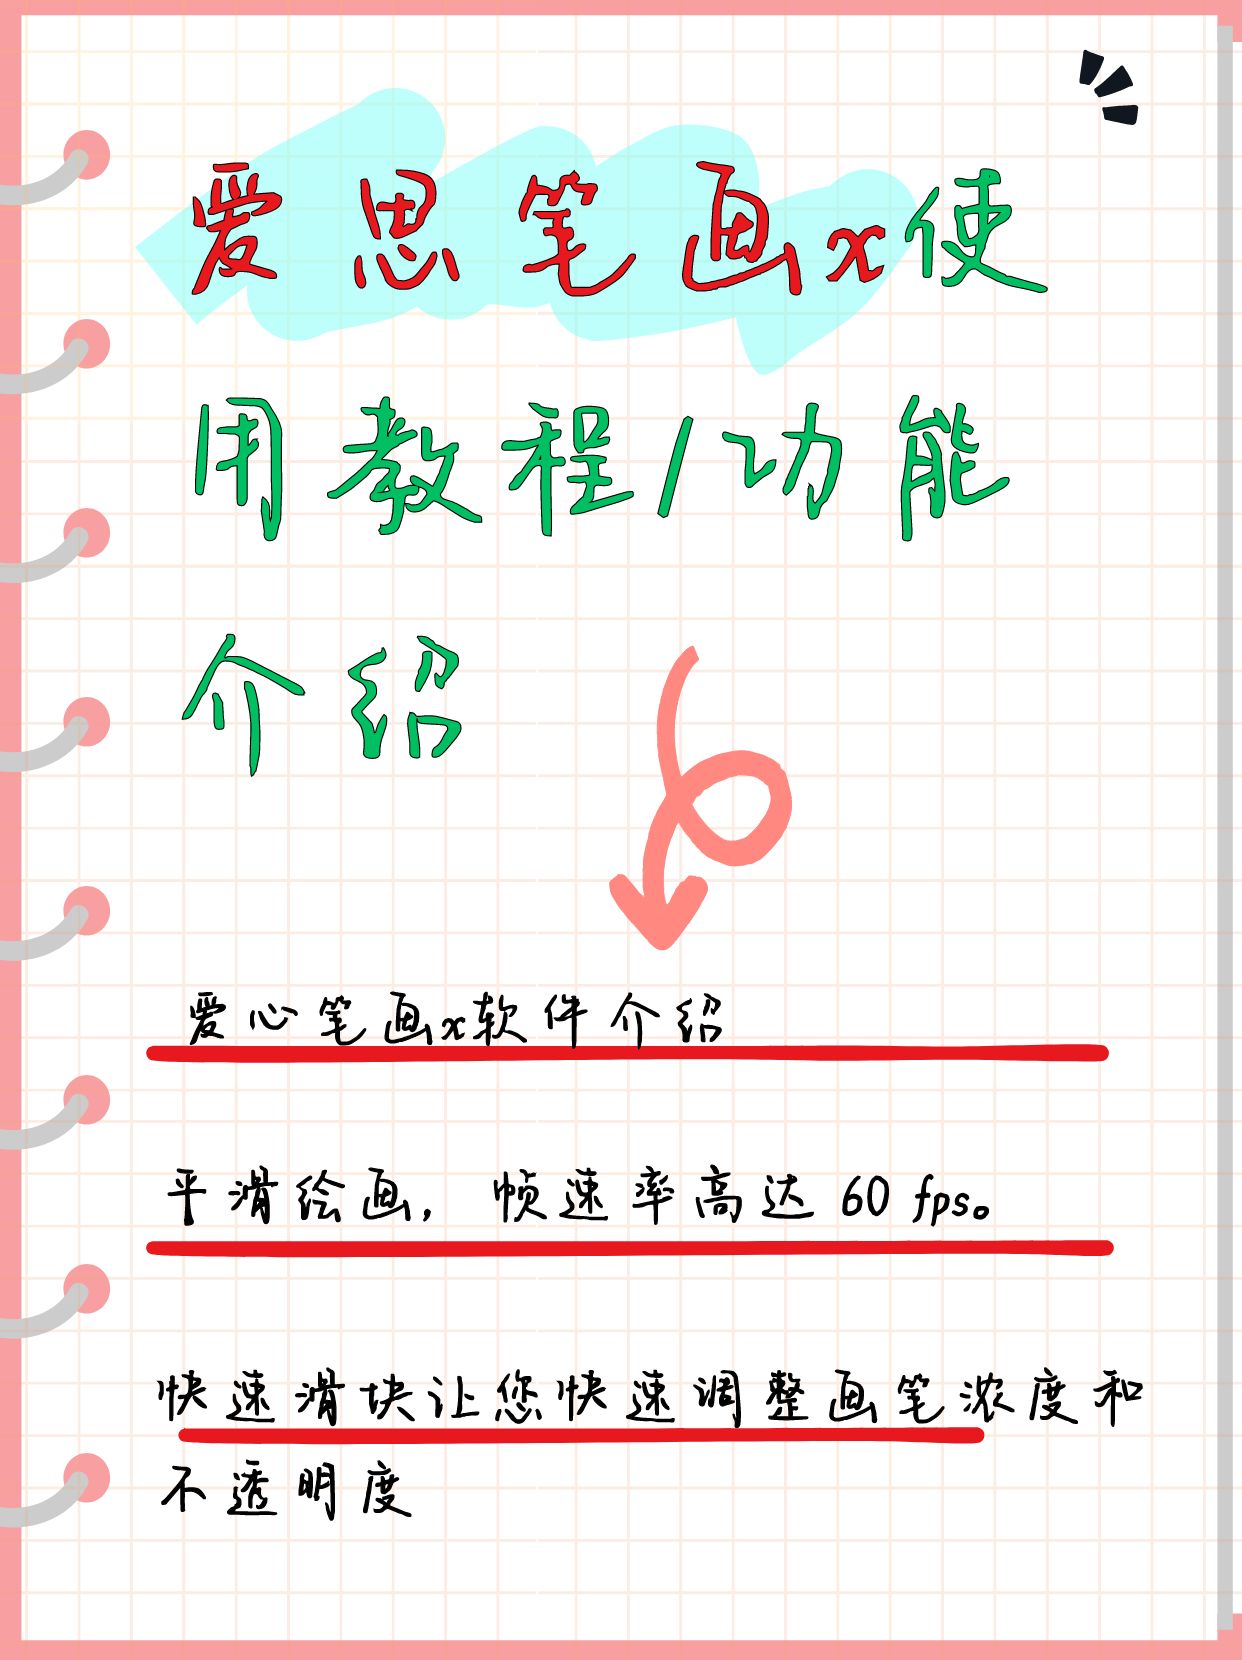 爱思笔画x使
用教程/功能
介绍
爱心笔画x软件介绍
平滑绘画，帧速率高达 60 fps。
快速滑块让您快速调整画笔浓度和
不透明度